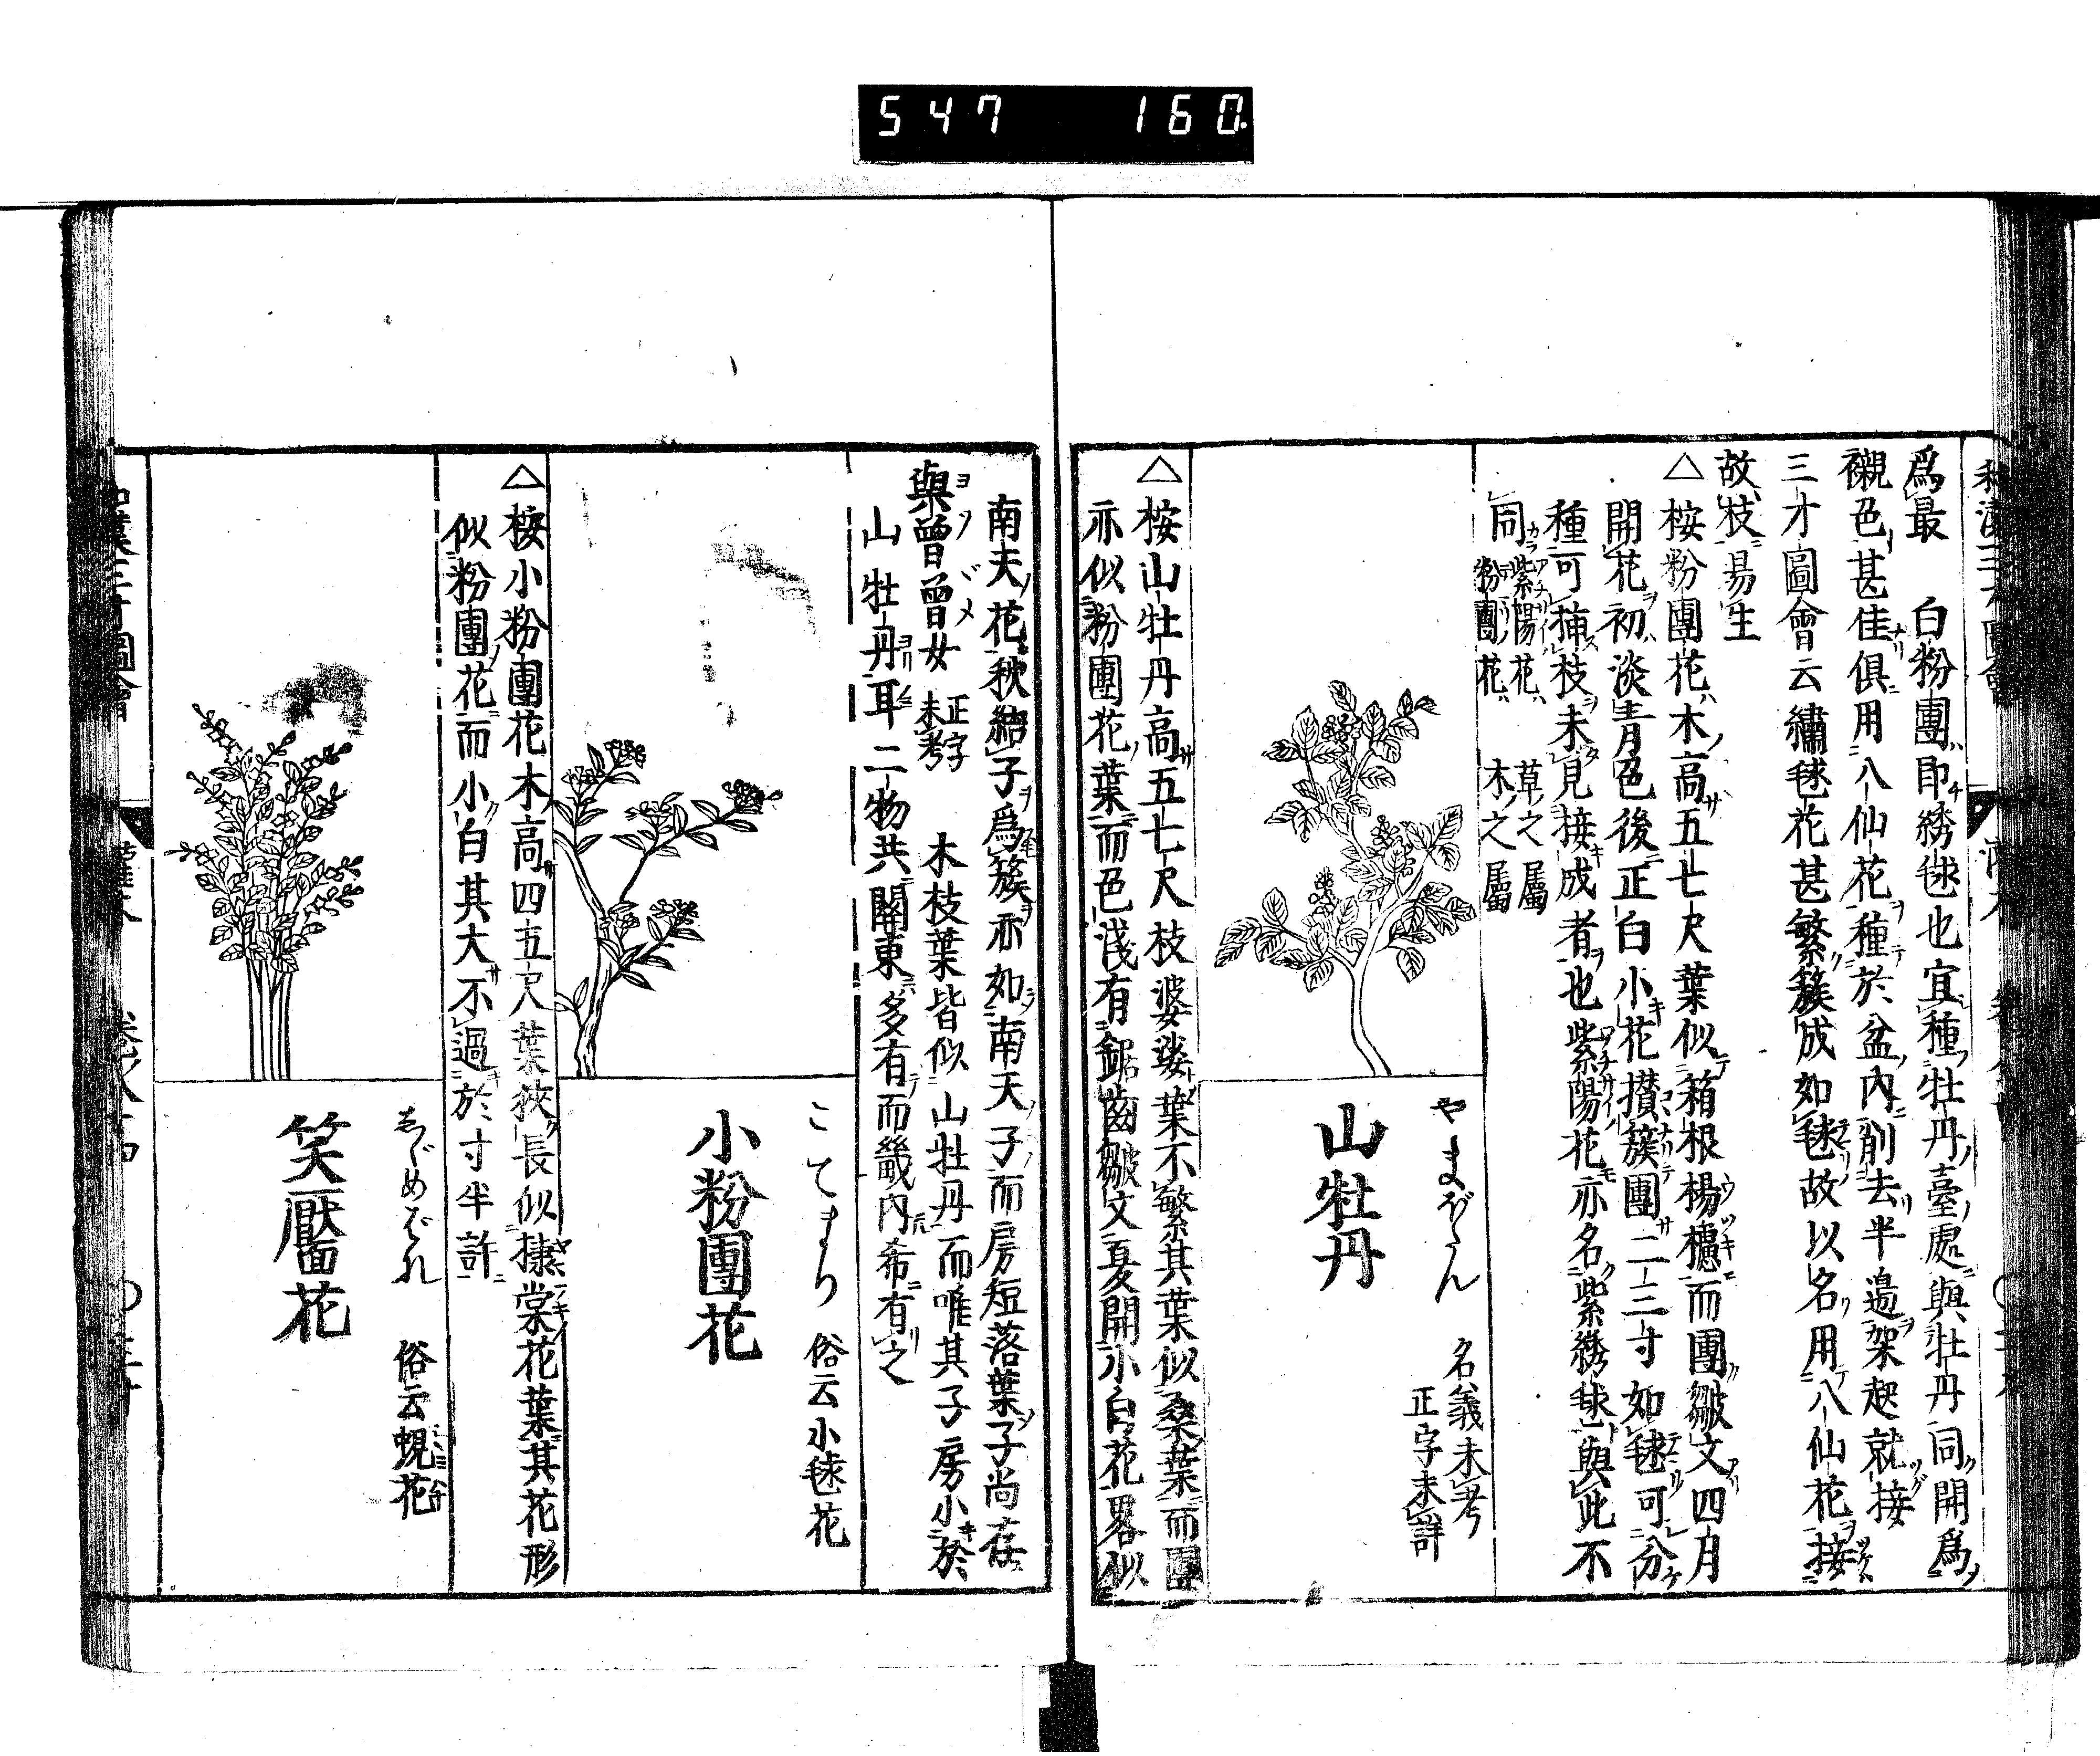 547 160
爲最 白粉團即綉毬也宜種牡丹臺處與牡丹同開爲
襯色甚佳俱用八仙花種於盆内削去半邉架起就接
三才圖會云繡毬花甚繁簇成如毬故以名用八仙花接
故枝易生
△桉粉團花木高五七尺葉似箱根楊櫨而團皺文四月
開花初淡青色後正白小花攅簇團二三寸如毬可分
種可揷枝未見接成者也紫陽花亦名紫綉毬與此不
同 紫陽花草之屬
粉團花木之屬
やまぼたん 名義未考
正字未詳
山牡丹
△桉山牡丹高五七尺枝婆娑葉不繁其葉似桑葉而團
亦似粉團花葉而色浅有鋸齒皺文夏開小白花畧似
南天花秋結子爲簇亦如南天子而房短落葉子尚在
與曾曾女 正字
未考 木枝葉皆似山牡丹而唯其子房小於
山牡丹耳二物共關東多有而畿内希有之
こてまり 俗云小毬花
小粉團花
△桉小粉團花木高四五尺葉狹長似棣棠花葉其花形
似粉團花而小白其大不過於寸半許
俗云蜆花
笑靨花